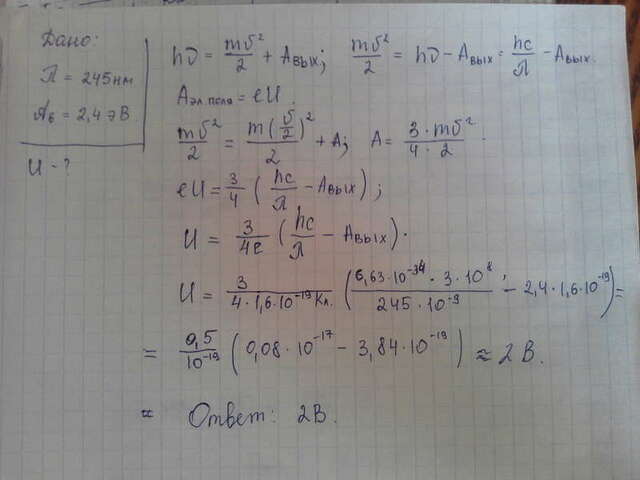 Дано:
λ = 245 нм
Aв = 2,4 эВ
U - ?
hν = mv²/2 + Aвых; mv²/2 = hν - Aвых = hc/λ - Aвых.
Aэл.поля = eU.
mv²/2 = m(v/2)²/2 + A; A = 3·mv²/4·2
eU = 3/4 (hc/λ - Aвых);
U = 3/4e (hc/λ - Aвых).
U = 3/4·1,6·10⁻¹⁹ Кл. (6,63·10⁻³⁴·3·10⁸/245·10⁻⁹ - 2,4·1,6·10⁻¹⁹) =
= 0,5/10⁻¹⁹ (0,08·10⁻¹⁷ - 3,84·10⁻¹⁹) ≈ 2 В.
≈ Ответ: 2В.